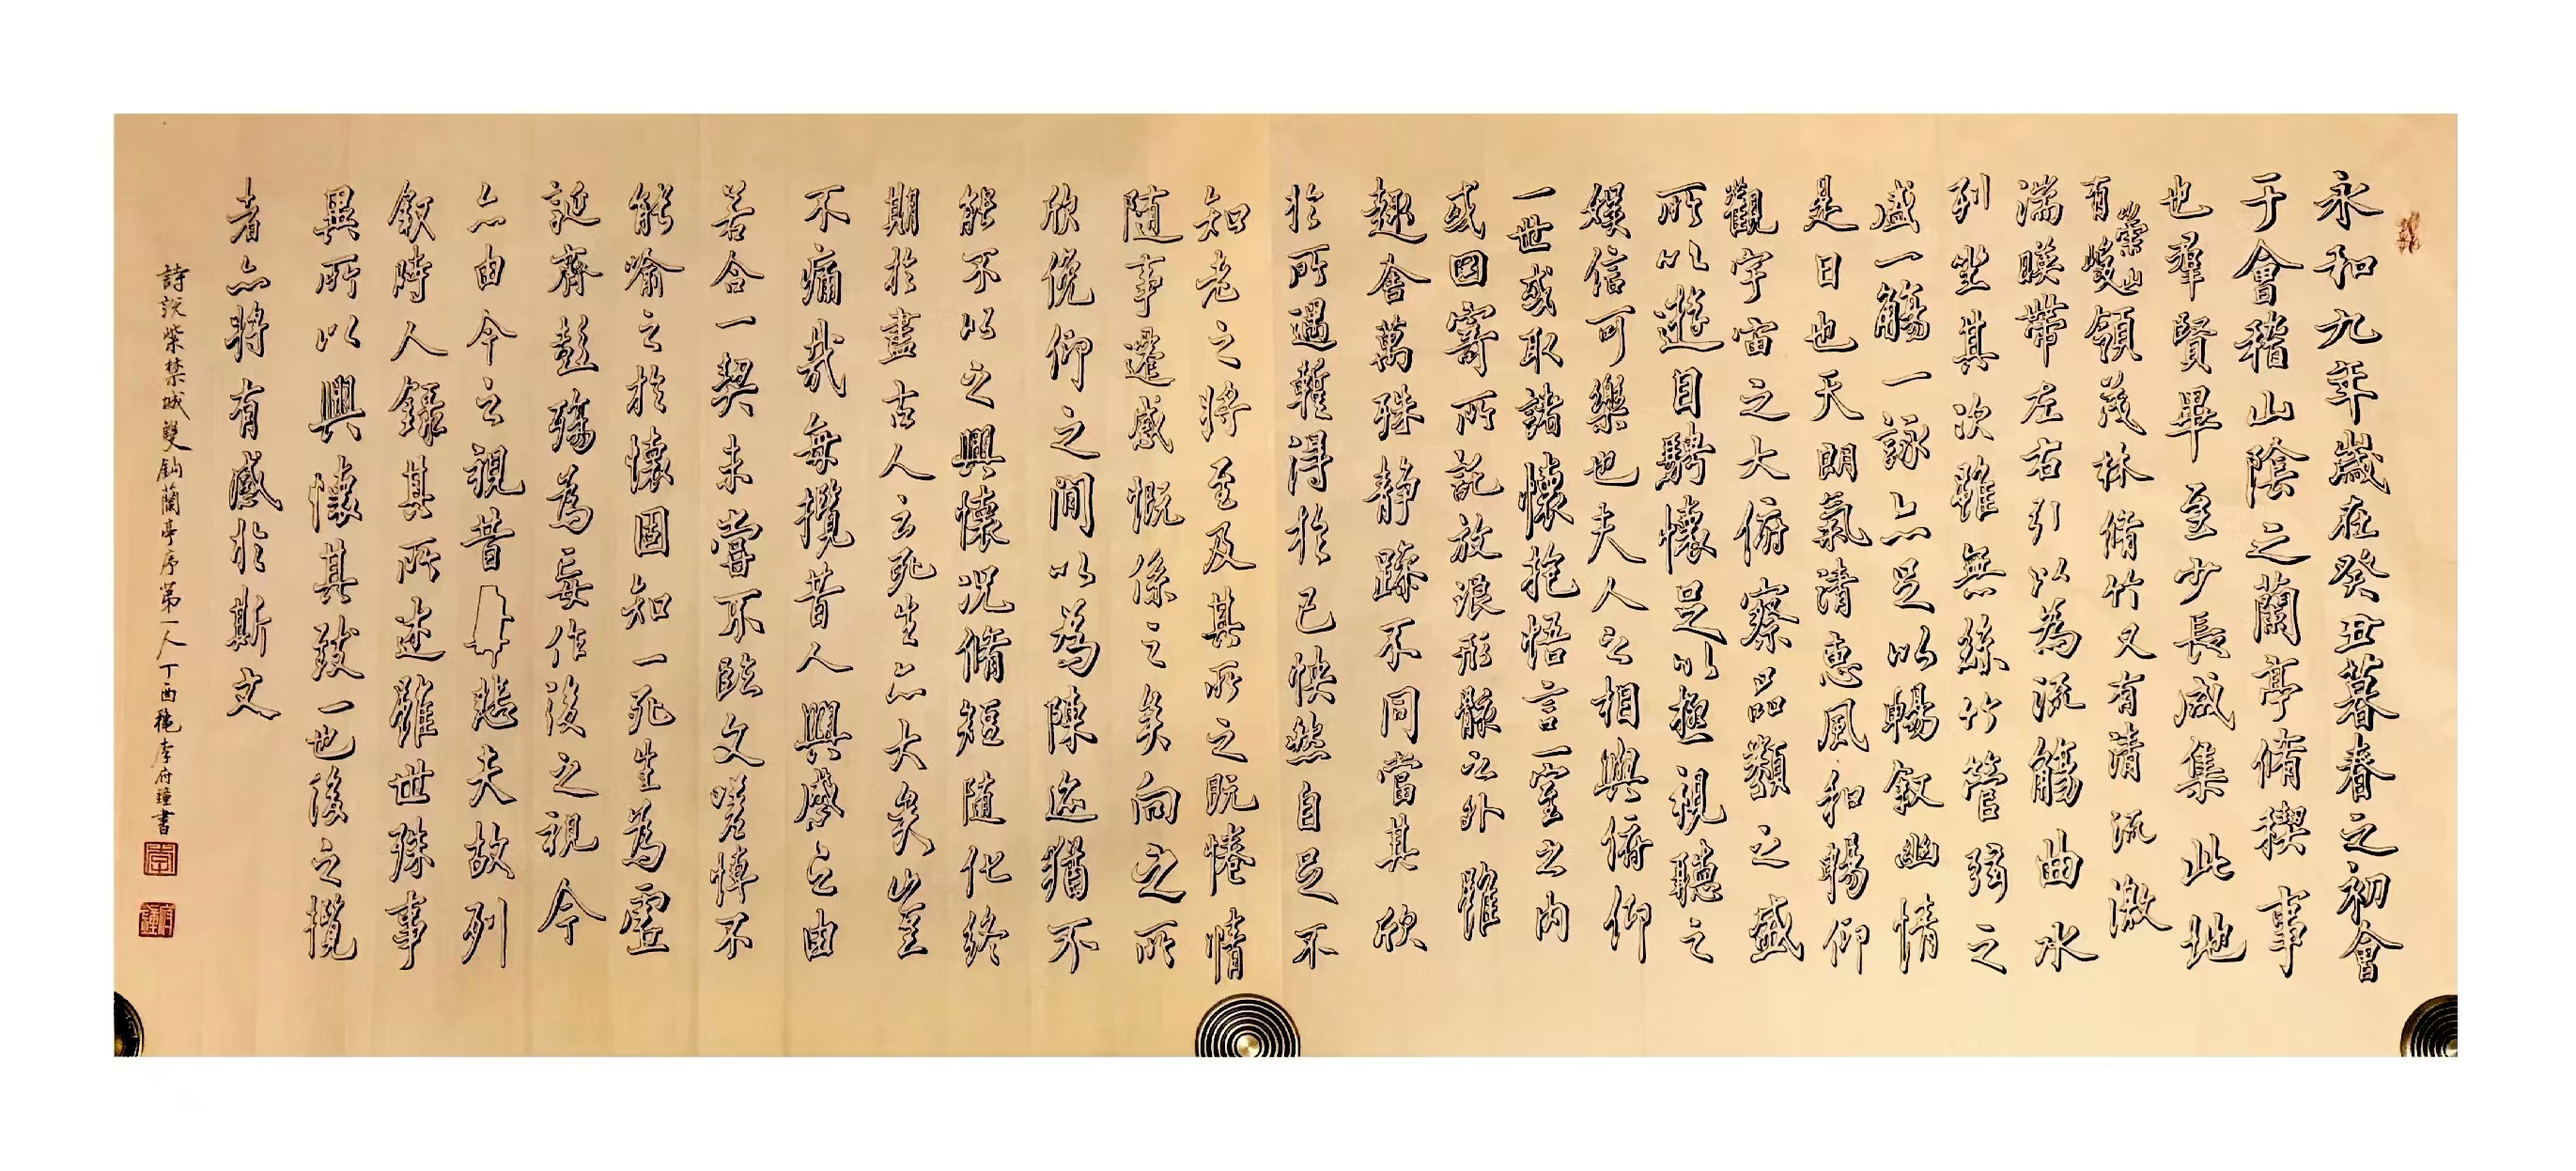 永和九年歲在癸丑暮春之初會
于會稽山陰之蘭亭脩禊事
也羣賢畢至少長咸集此地
有崇山峻領茂林脩竹又有清流激
湍暎帶左右引以為流觴曲水
列坐其次雖無絲竹管弦之
盛一觴一詠亦足以暢敘幽情
是日也天朗氣清惠風和暢仰
觀宇宙之大俯察品類之盛
所以遊目騁懷足以極視聽之
娛信可樂也夫人之相與俯仰
一世或取諸懷抱悟言一室之內
或因寄所託放浪形骸之外雖
趣舍萬殊静躁不同當其欣
於所遇蹔得於己怏然自足不
知老之將至及其所之既惓情
随事遷感慨係之矣向之所
欣俛仰之閒以為陳迹猶不
能不以之興懷况脩短随化終
期於盡古人云死生亦大矣豈
不痛哉每攬昔人興感之由
若合一契未嘗不臨文嗟悼不
能喻之於懷固知一死生為虛
誕齊彭殤為妄作後之視今
亦由今之視昔悲夫故列
敘時人錄其所述雖世殊事
異所以興懷其致一也後之攬
者亦將有感於斯文
詩説紫禁城雙鈎蘭亭序第一人丁酉穐李府鐘書